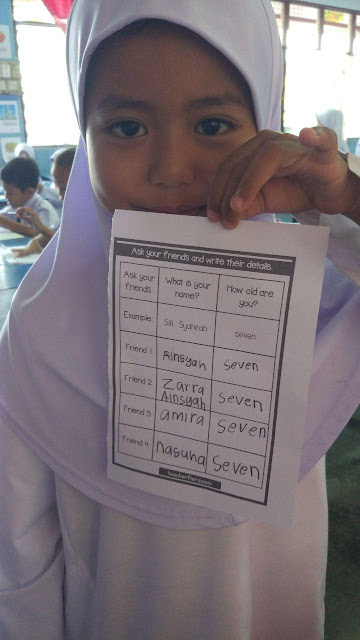 Ask your friends and write their details.
Ask your friends What is your name? How old are you?
Example: Siti Syahirah seven
Friend 1 Ainsyah seven
Friend 2 Zarra Ainsyah seven
Friend 3 amira seven
Friend 4 nasuha seven